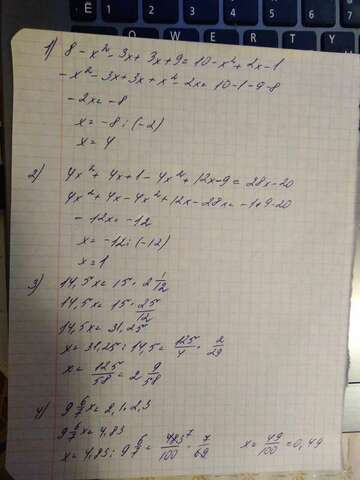 1) 8 - x² - 3x + 3x + 9 = 10 - x² + 2x - 1
- x² - 3x + 3x + x² - 2x = 10 - 1 - 9 - 8
- 2x = -8
x = -8 : (-2)
x = 4
2) 4x² + 4x + 1 - 4x² + 12x - 9 = 28x - 20
4x² + 4x - 4x² + 12x - 28x = -1+9-20
- 12x = -12
x = -12 : (-12)
x = 1
3) 14,5x = 15 · 2 1/12
14,5x = 15 · 25/12
14,5x = 31,25
x = 31,25 : 14,5 = 125/4 · 2/29
x = 125/58 = 2 9/58
4) 9 6/7 x = 2,1 · 2,3
9 6/7 x = 4,83
x = 4,83 : 9 6/7 = 483/100 · 7/69 x = 49/100 = 0,49